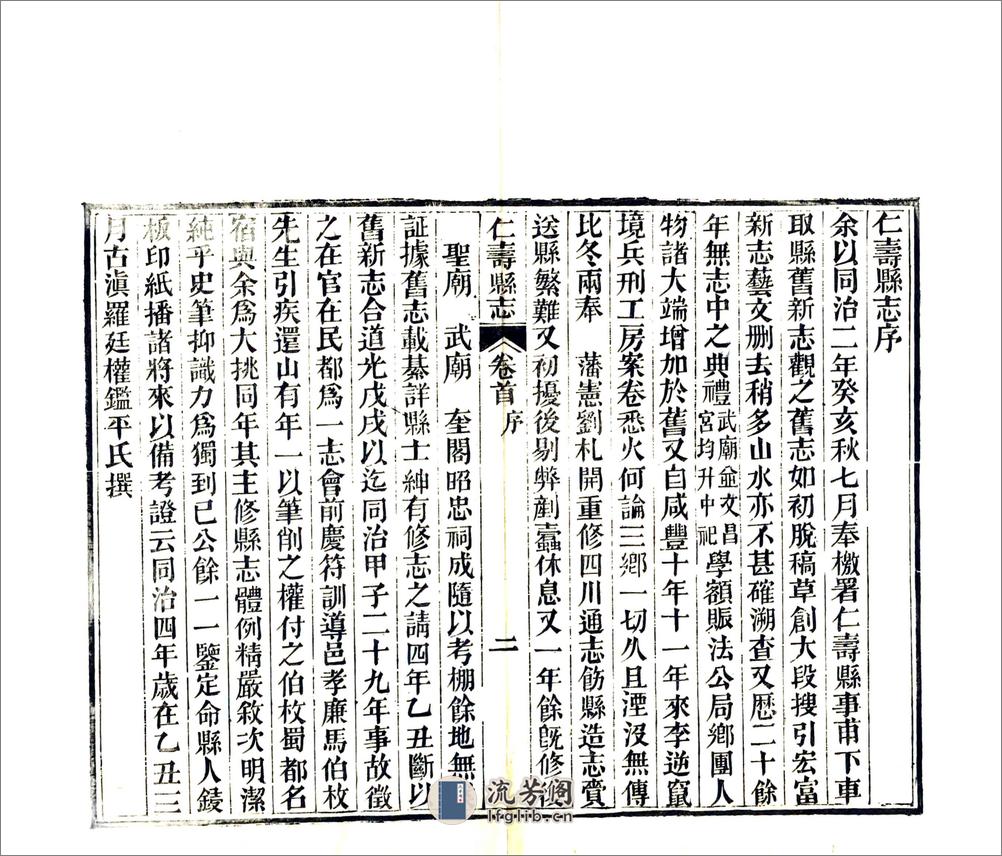 仁壽縣志序
余以同治二年癸亥秋七月奉檄署仁壽縣事甫下車
取縣舊新志觀之舊志如初脫稿草創大段搜引宏富
新志藝文刪去稍多山水亦不甚確溯查又歷二十餘
年無志中之典禮武廟並文昌宮均升中祀學額賬法公局鄉團人
物諸大端增加於舊又自咸豐十年十一年來李逆竄
境兵刑工房案卷悉火何論三鄉一切久且湮沒無傳
比冬兩奉 藩憲劉札開重修四川通志飭縣造志賫
送縣繁難又初擾後剔弊剷蠹休息又一年餘旣修
仁壽縣志 卷首 序 二
聖廟 武廟 奎閣昭忠祠成隨以考棚餘地無
証據舊志載綦詳縣士紳有修志之請四年乙丑斷以
舊新志合道光戊戌以迄同治甲子二十九年事故徵
之在官在民都爲一志會前慶符訓導邑孝廉馬伯枚
先生引疾還山有年一以筆削之權付之伯枚蜀都名
宿與余爲大挑同年其主修縣志體例精嚴敘次明潔
純乎史筆抑識力爲獨到已公餘一一鑒定命縣人錂
板印紙播諸將來以備考證云同治四年歲在乙丑三
月古滇羅廷權鑑平氏撰
流芳閣
lfglib.cn